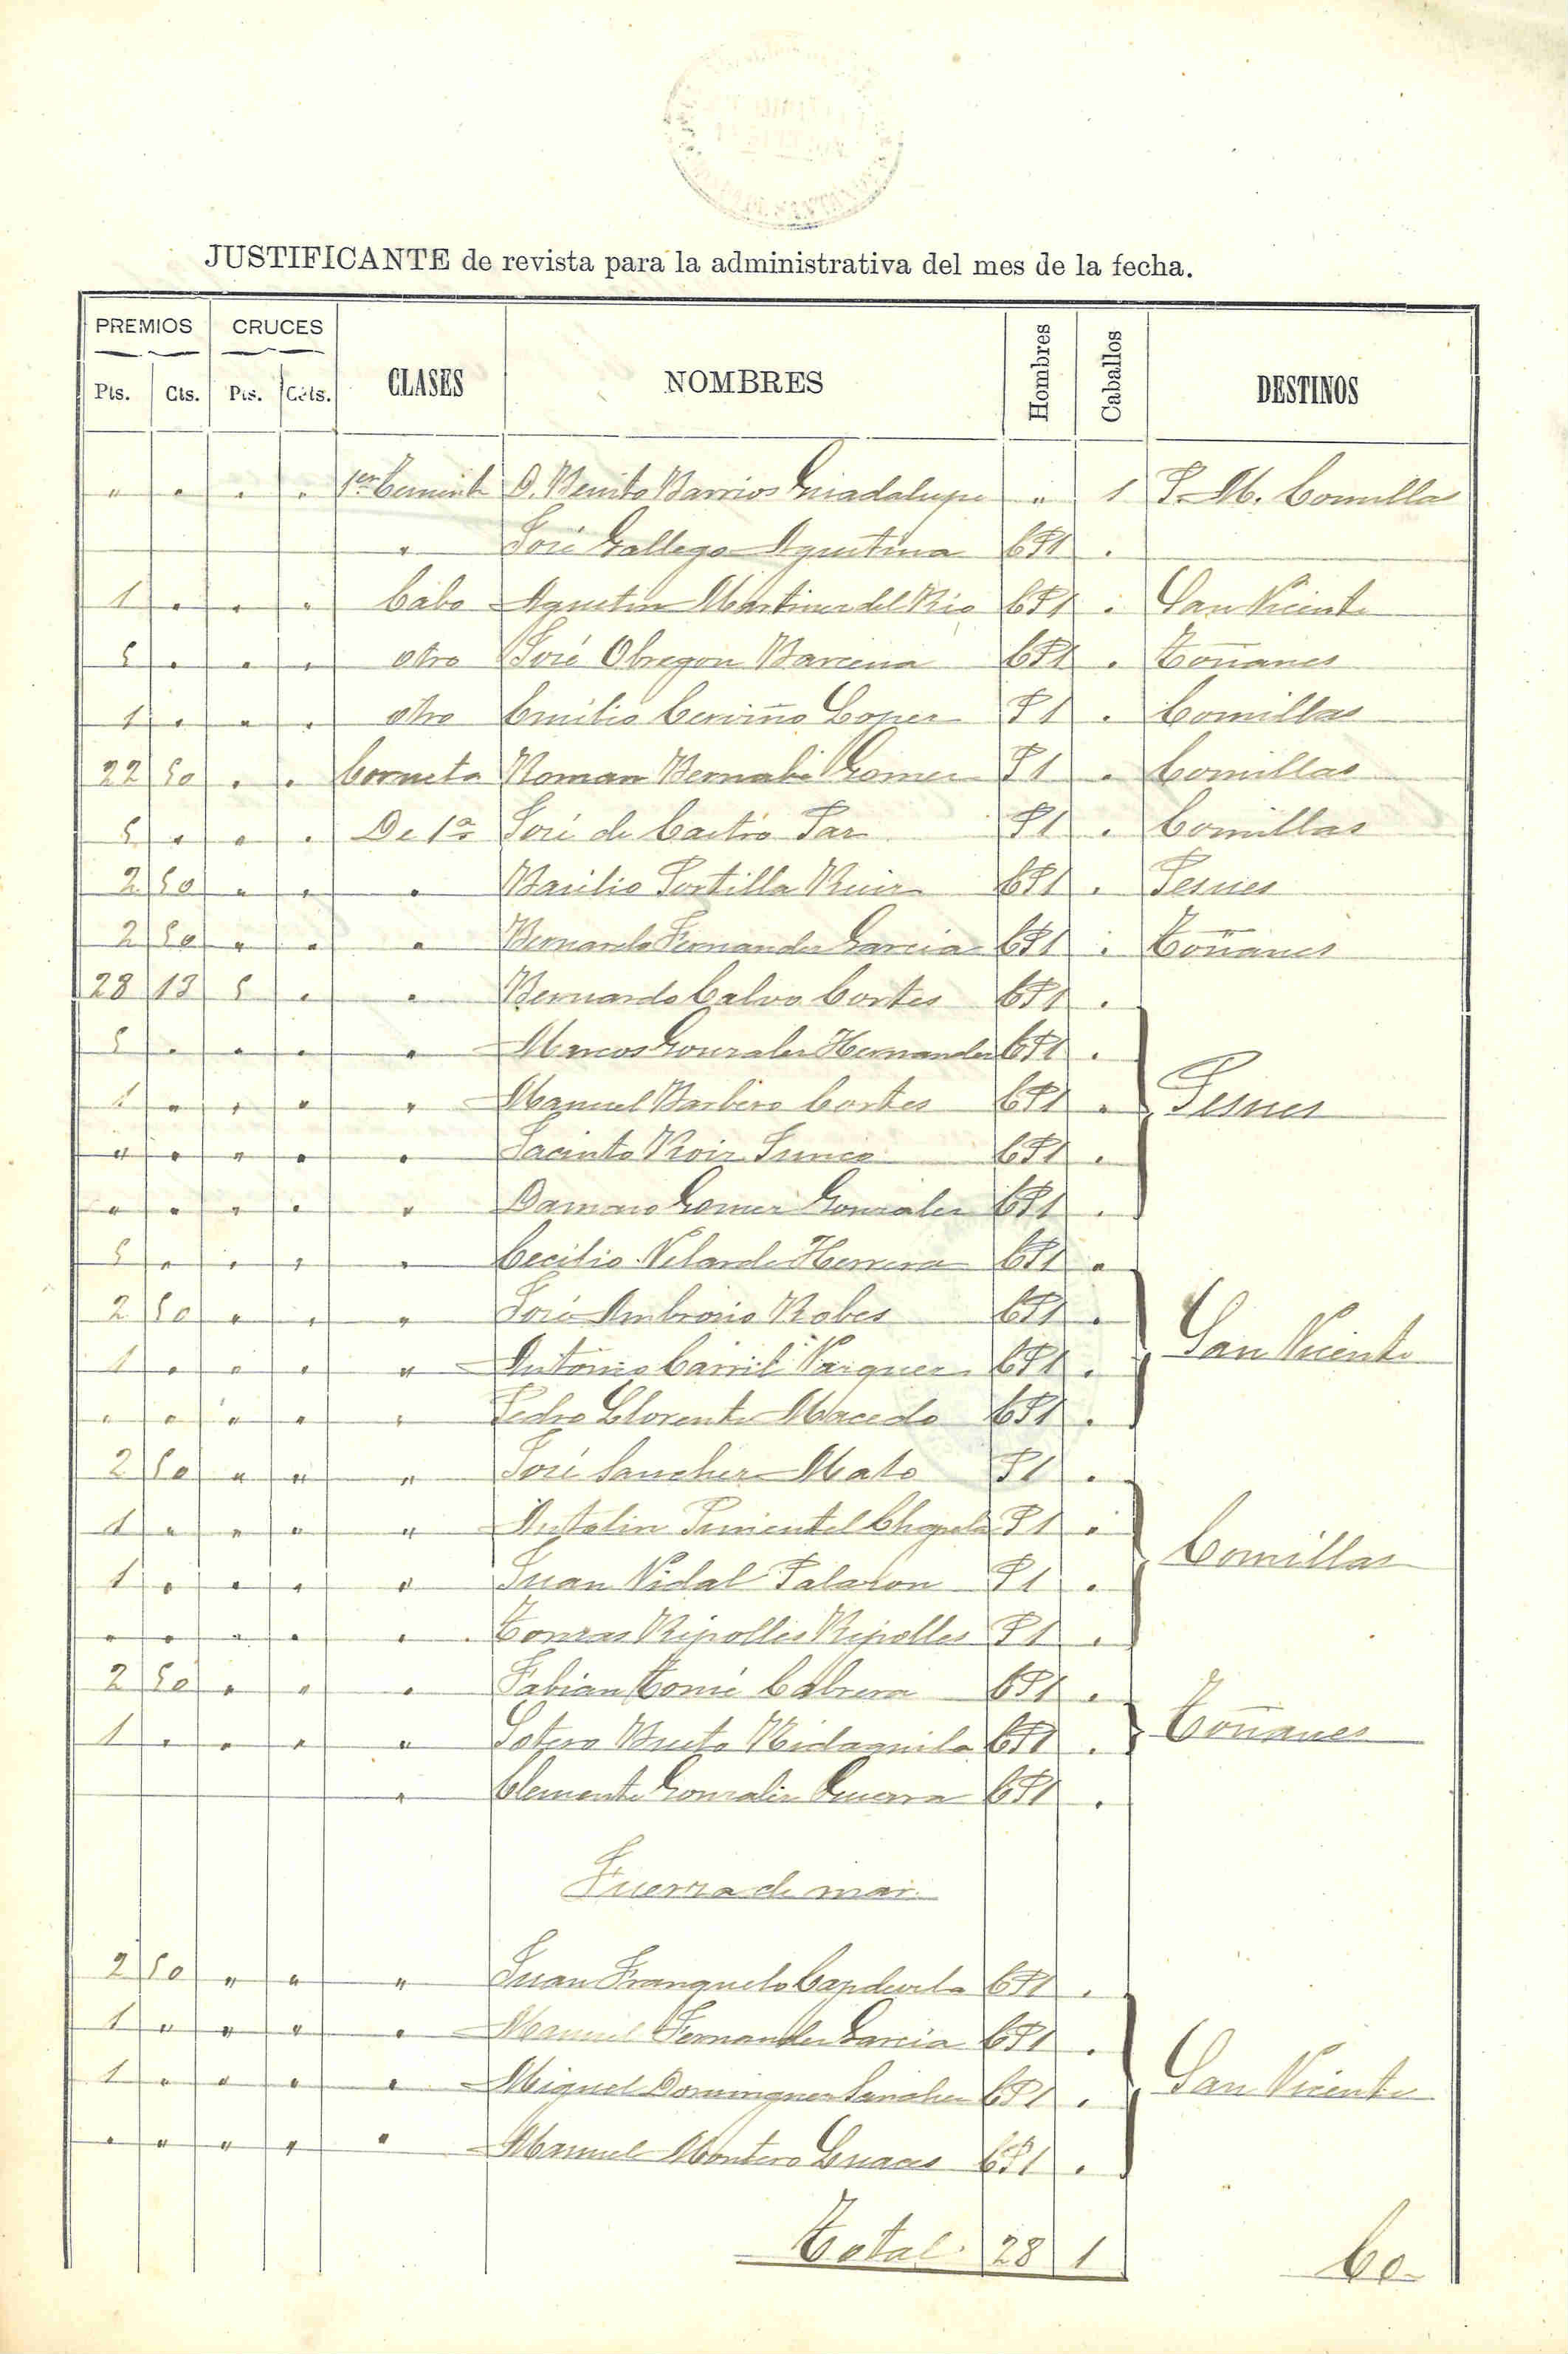 JUSTIFICANTE de revista para la administrativa del mes de la fecha.
PREMIOS CRUCES CLASES NOMBRES Hombres Caballos DESTINOS
Pts. Cts. Pts. Céts.
" " " " 1er Teniente D. Benito Barrios Guadalupe " 1 P. M. Comillas
" José Gallego Agustina CP1 "
1 " " " Cabo Agustin Martinez del Rio CP1 " San Vicente
5 " " " otro José Obregon Barcena CP1 " Toñanes
1 " " " otro Emilio Cerviño Lopez P1 " Comillas
22 50 " " Corneta Roman Bernabé Gomez P1 " Comillas
5 " " " De 1a José de Castro Paz P1 " Comillas
2 50 " " " Basilio Portilla Ruiz CP1 " Pesues
2 50 " " " Bernardo Fernandez Garcia CP1 " Toñanes
28 13 5 " " Bernardo Calvo Cortes CP1 "
5 " " " " Marcos Gonzalez Hernandez CP1 "
1 " " " " Manuel Barbero Cortes CP1 " Pesues
" " " " " Jacinto Roiz Junco CP1 "
" " " " " Damaso Gomez Gonzalez CP1 "
5 " " " " Cecilio Velarde Herrera CP1 "
2 50 " " " José Ambrosio Robes CP1 "
1 " " " " Antonio Carril Vazquez CP1 " San Vicente
" " " " " Pedro Llorente Macedo CP1 "
2 50 " " " José Sanchez Mato P1 "
1 " " " " Antolin Pimentel Chapela P1 "
1 " " " " Juan Vidal Palazon P1 " Comillas
" " " " " Tomas Ripolles Ripolles P1 "
2 50 " " " Fabian Tomé Cabrera CP1 "
1 " " " " Sotero CP1 " Toñanes
" Clemente Gonzalez Guerra CP1 "
Fuerza de mar
2 50 " " " Juan Franquelo Capdevila CP1 "
1 " " " " Manuel Fernandez Garcia CP1 "
1 " " " " Miguel Dominguez Sanchez CP1 " San Vicente
" " " " " Manuel Montero Guaces CP1 "
Total 28 1 Co-